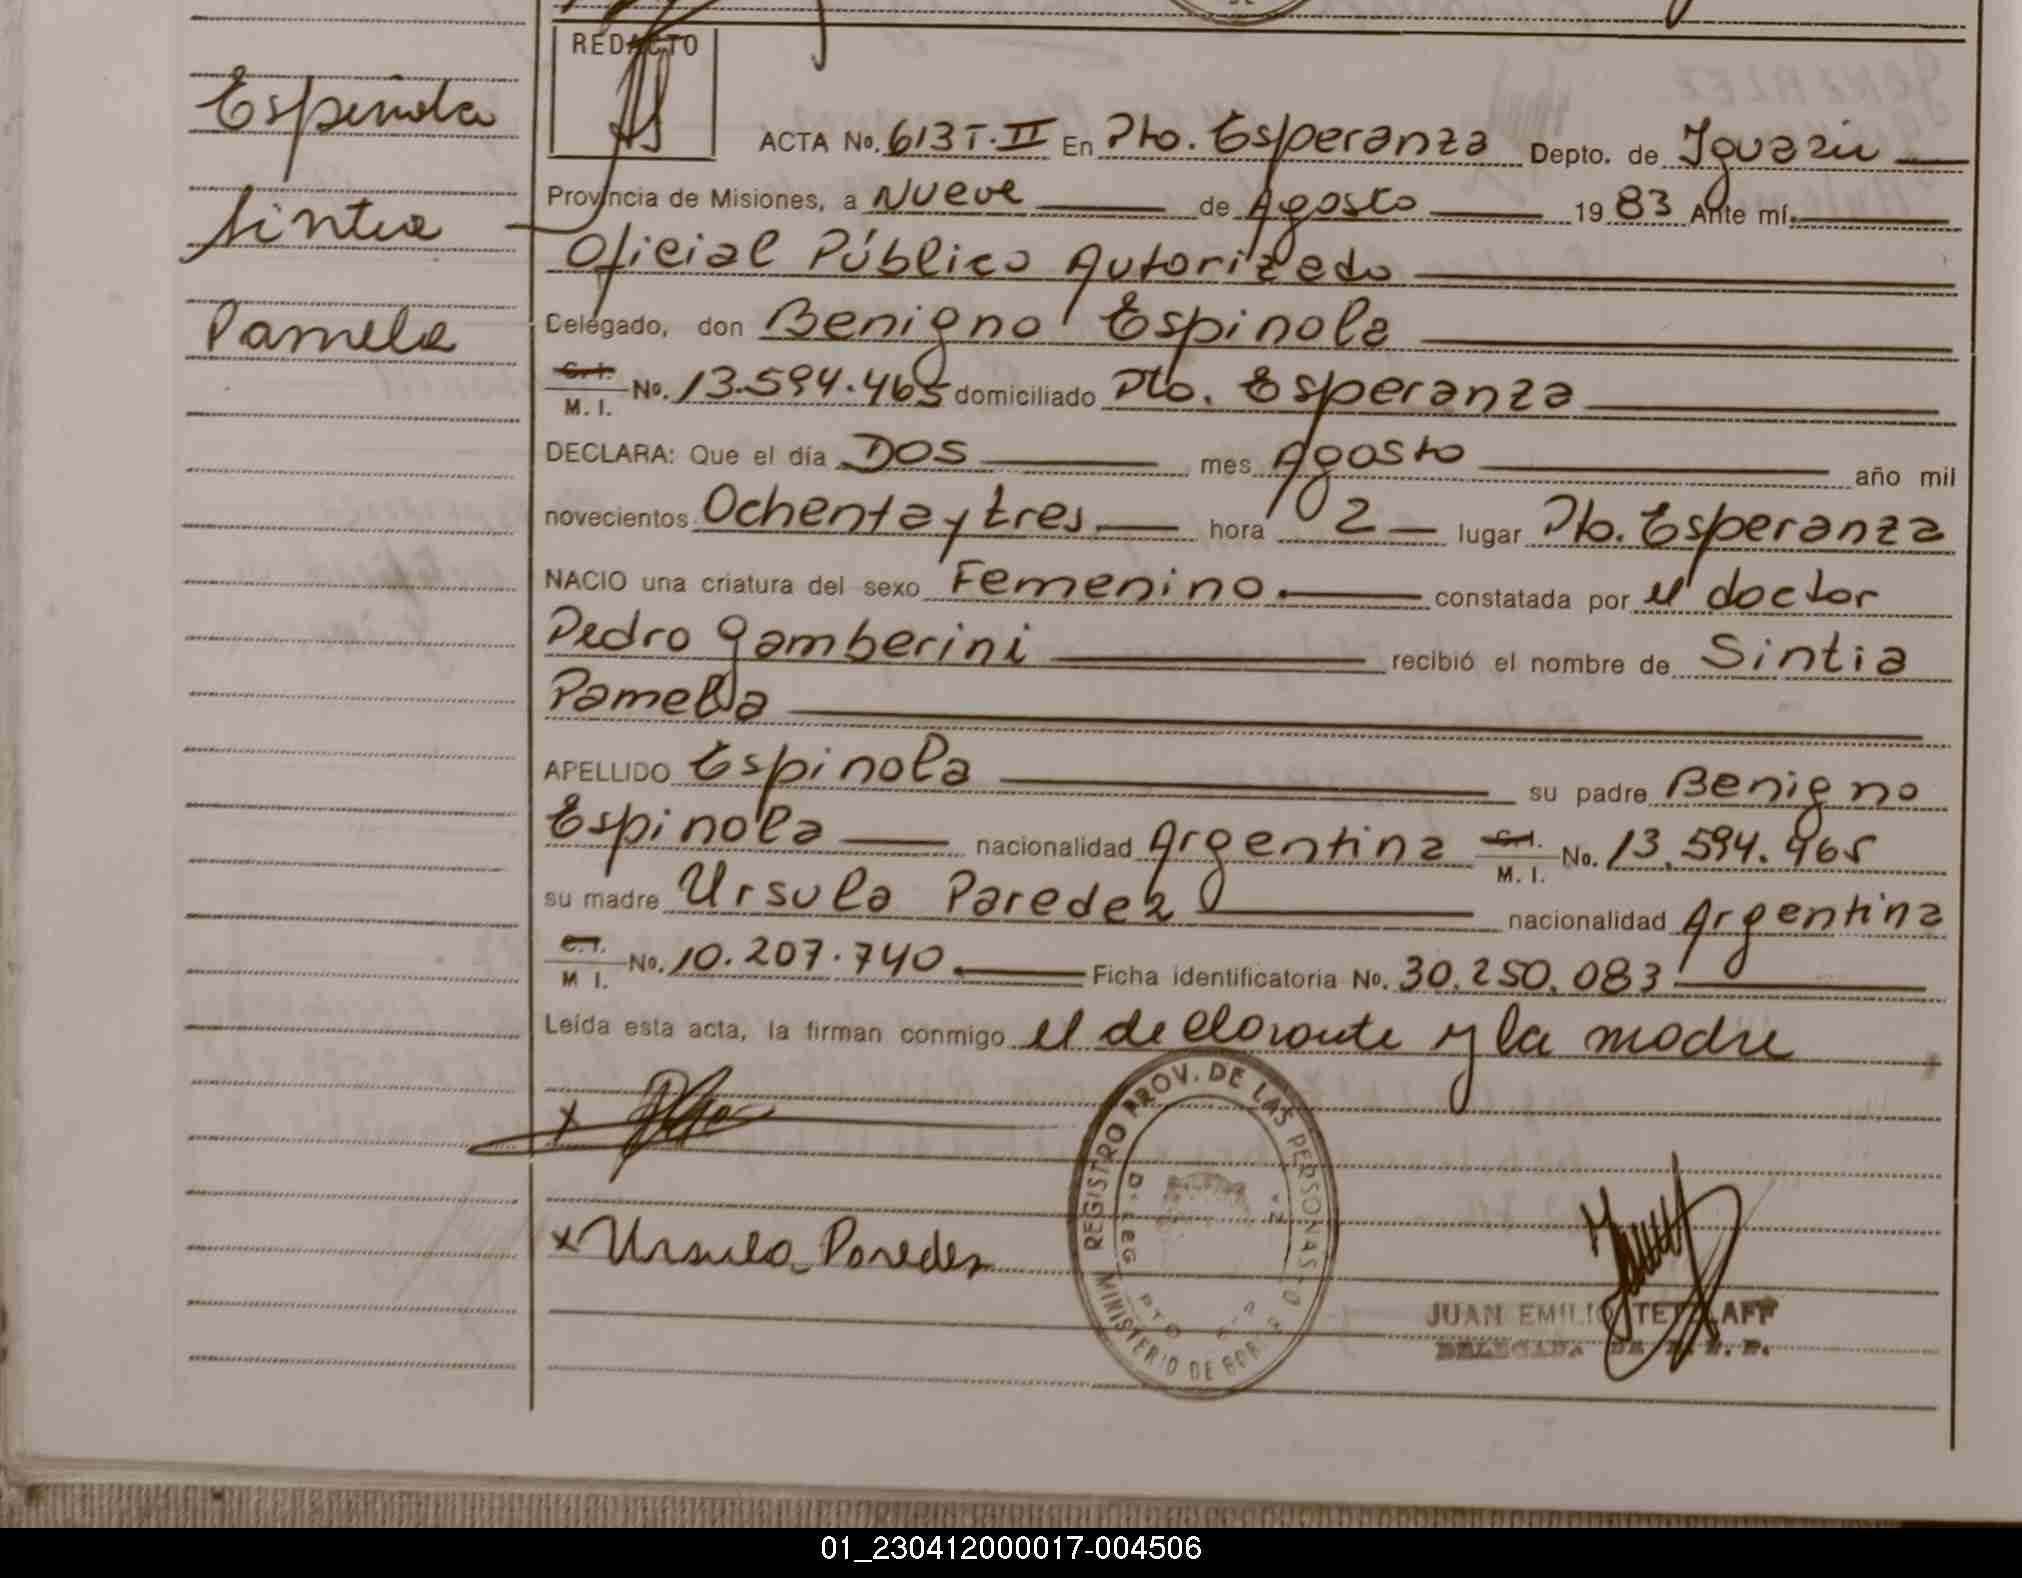 REDACTO
Espinola
Sintia
Pamela
ACTA No. 613 T. II En Pto. Esperanza Depto. de Iguazú
Provincia de Misiones, a Nueve de Agosto 1983 Ante mí.
Oficial Público Autorizado
Delegado, don Benigno Espinola
C.I. M. I. No. 13.594.465 domiciliado Pto. Esperanza
DECLARA: Que el día DOS mes Agosto año mil
novecientos Ochenta y tres hora 2 lugar Pto. Esperanza
NACIO una criatura del sexo Femenino. constatada por el doctor
Pedro Gamberini recibió el nombre de Sintia
Pamela
APELLIDO Espinola su padre Benigno
Espinola nacionalidad Argentina C.I. M. I. No. 13.594.465
su madre Ursula Paredez nacionalidad Argentina
C.I. M I. No. 10.207.740. Ficha identificatoria No. 30.250.083
Leída esta acta, la firman conmigo el declarante y la madre
x
x Ursula Paredez
REGISTRO PROV. DE LAS PERSONAS
MINISTERIO DE GOB
JUAN EMILIO
01_230412000017-004506